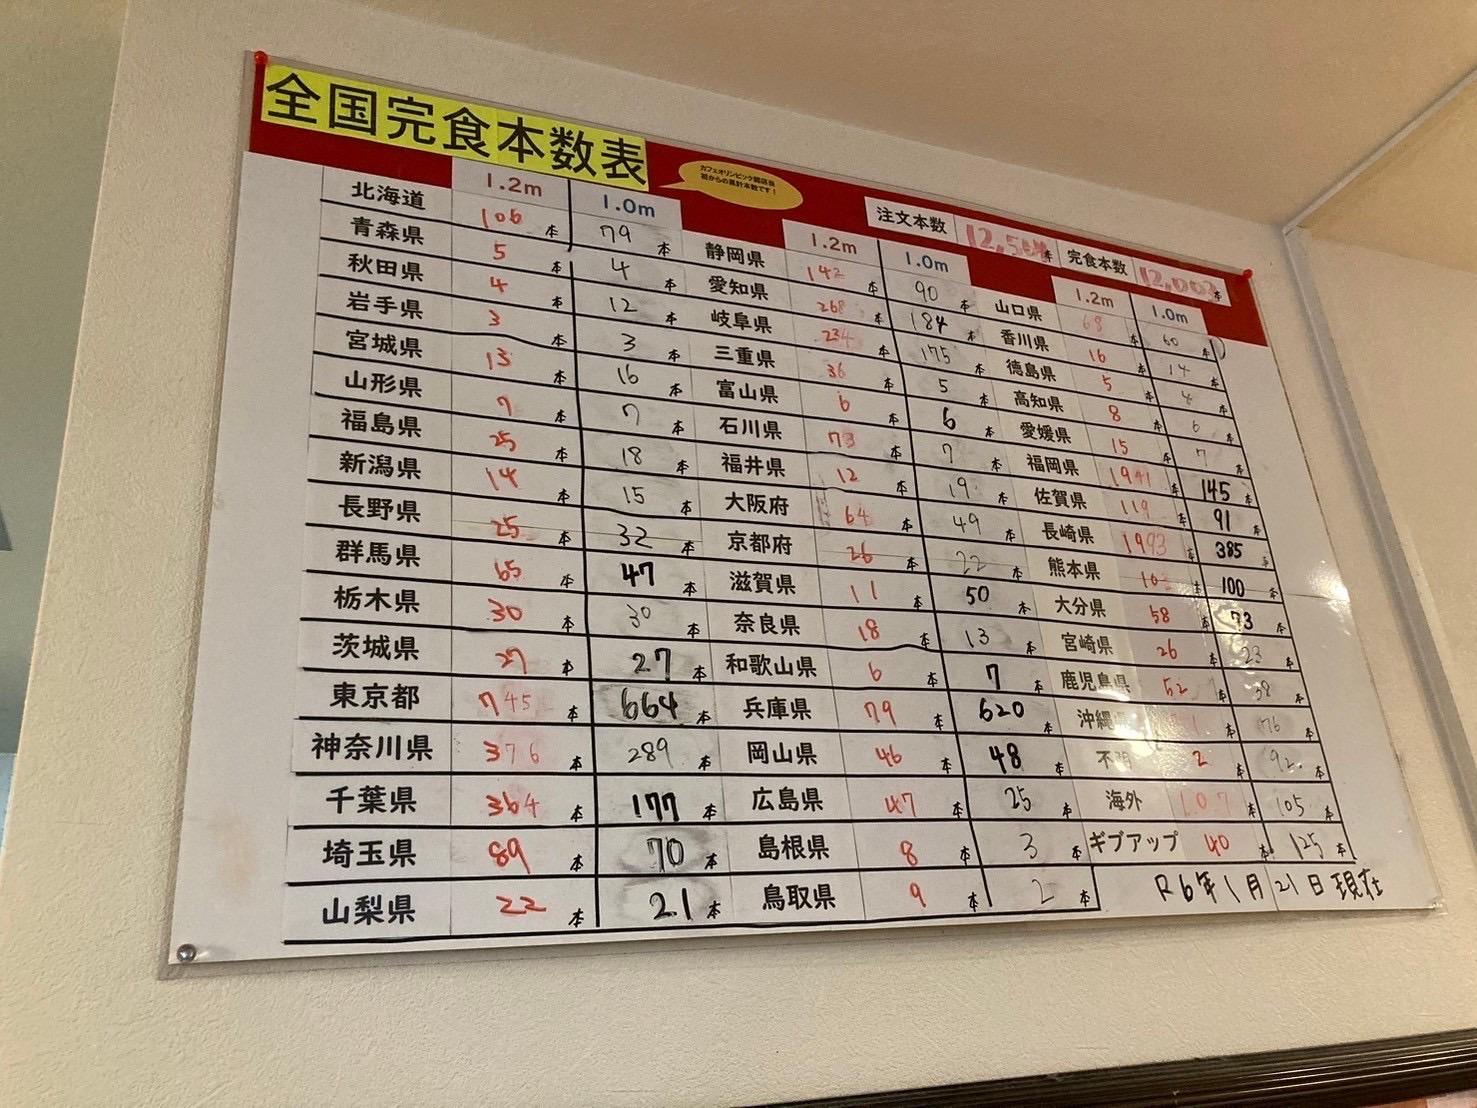 全国完食本数表
カフェオリンピック開店後
初からの累計本数です！
注文本数 完食本数
1.2m 1.0m
北海道 106本 79本
青森県 5本 4本
秋田県 4本 12本
岩手県 3本 3本
宮城県 13本 16本
山形県 7本 7本
福島県 25本 18本
新潟県 14本 15本
長野県 25本 32本
群馬県 65本 47本
栃木県 30本 30本
茨城県 27本 27本
東京都 745本 664本
神奈川県 376本 289本
千葉県 364本 177本
埼玉県 89本 70本
山梨県 22本 21本
1.2m 1.0m
静岡県 142本 90本
愛知県 268本 184本
岐阜県 234本 175本
三重県 36本 5本
富山県 6本 6本
石川県 73本 7本
福井県 12本 19本
大阪府 64本 49本
京都府 26本 22本
滋賀県 11本 50本
奈良県 18本 13本
和歌山県 6本 7本
兵庫県 79本 620本
岡山県 46本 48本
広島県 47本 25本
島根県 8本 3本
鳥取県 9本 2本
1.2m 1.0m
山口県 68本 60本
香川県 16本 14本
徳島県 5本 4本
高知県 8本 6本
愛媛県 15本 7本
福岡県 1941本 145本
佐賀県 119本 91本
長崎県 1993本 385本
熊本県 本 100本
大分県 58本 73本
宮崎県 26本 23本
鹿児島県 52本 38本
沖縄 本 76本
2本 92本
海外 107本 105本
ギブアップ 40本 125本
R6年1月21日現在